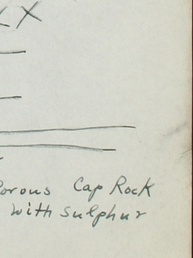 XX
Porous Cap Rock
with sulphur